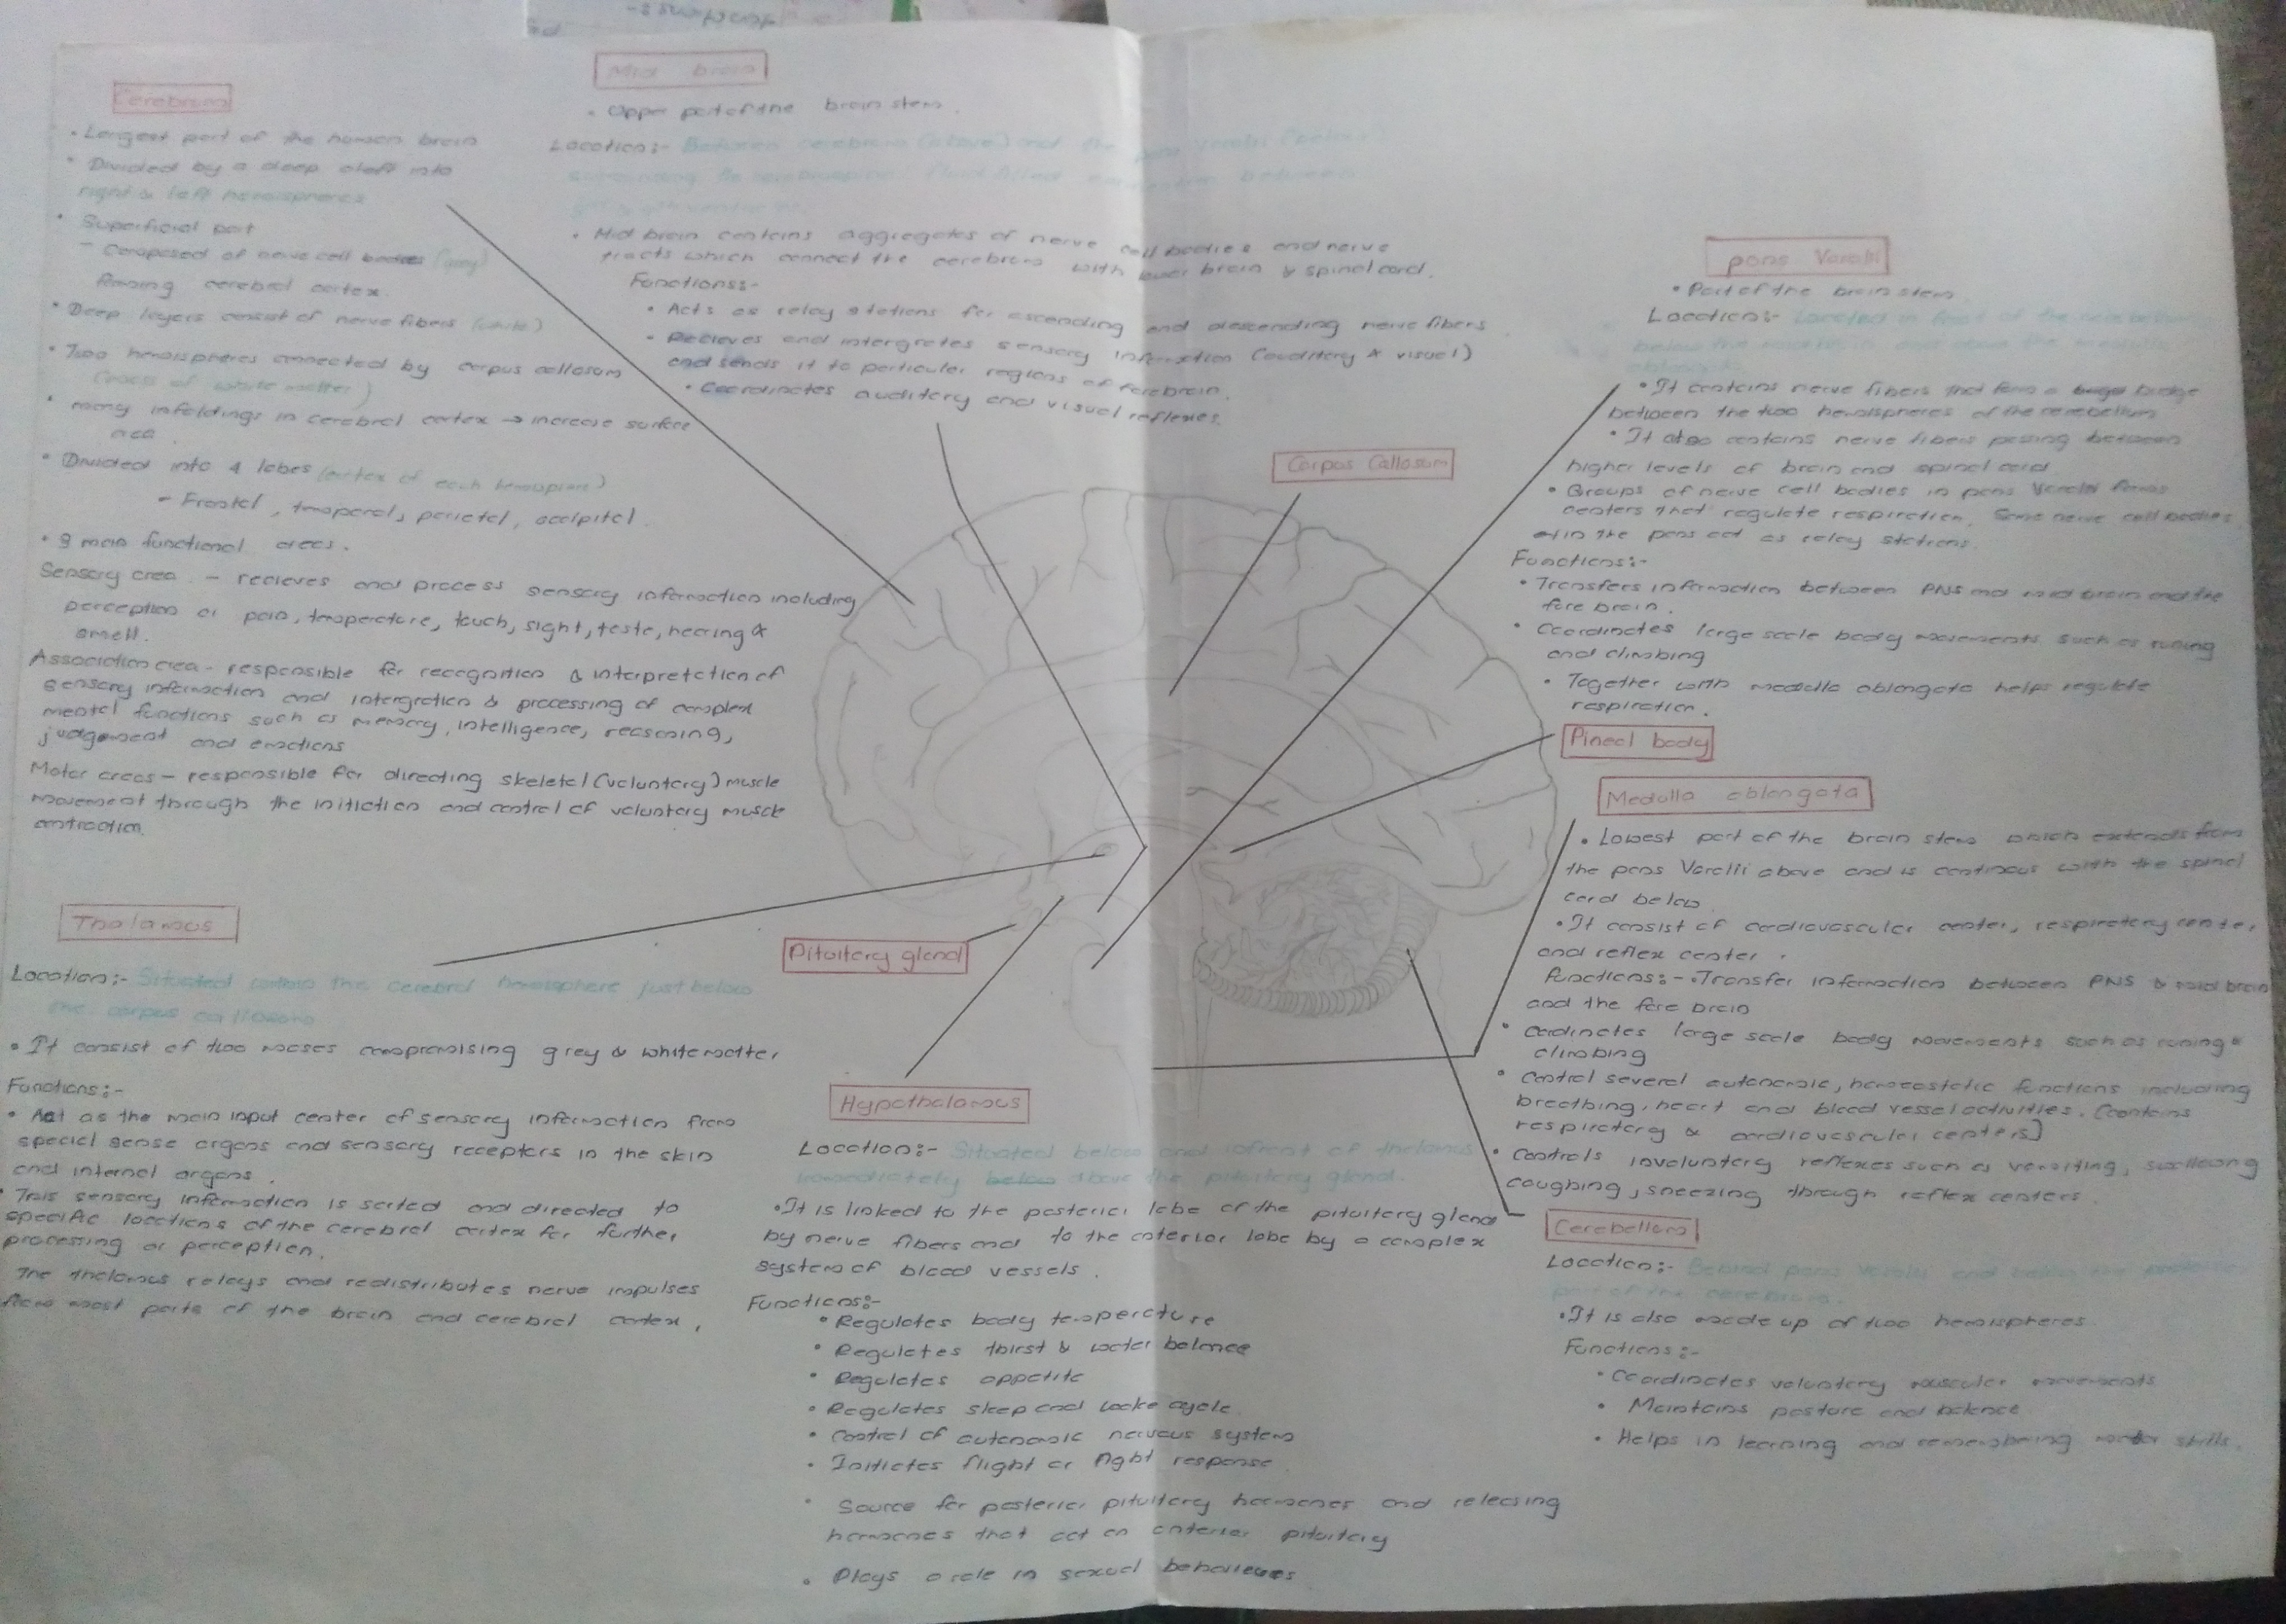 Cerebrum
• Largest part of the human brain
• Divided by a deep cleft into
right & left hemispheres
• Superficial part
- Composed of nerve cell bodies (grey)
forming cerebral cortex.
• Deep layers consist of nerve fibers (white)
• Two hemispheres connected by corpus callosum
(tracts of white matter)
• many infoldings in cerebral cortex → increase surface
area.
• Divided into 4 lobes (cortex of each hemisphere)
- Frontal, temporal, parietal, occipital.
• 3 main functional areas.
Sensory area - recieves and process sensory information including
perception of pain, temperature, touch, sight, taste, hearing &
smell.
Association area - responsible for recognition & interpretation of
sensory information and intergration & processing of complex
mental functions such as memory, intelligence, reasoning,
judgement and emotions
Motor areas - responsible for directing skeletal (voluntary) muscle
movement through the initiation and control of voluntary muscle
contraction.
Mid brain
• Upper part of the brain stem.
Location:- Between cerebrum (above) and the pons Varolii (below)
surrounding the
• Mid brain contains aggregates of nerve cell bodies and nerve
tracts which connect the cerebrum with lower brain & spinal cord.
Functions:-
• Acts as relay stations for ascending and descending nerve fibers
• Recieves and intergretes sensory information (auditory & visual)
and sends it to particular regions of forebrain.
• Coordinates auditory and visual reflexes.
Corpus Callosum
pons Varolii
• Part of the brain stem
Location:- Located in front of the cerebellum
below the
oblongata
• It contains nerve fibers that form a bridge
between the two hemispheres of the cerebellum
• It also contains nerve fibers passing between
higher levels of brain and spinal cord.
• Groups of nerve cell bodies in pons Varolii forms
centers that regulate respiration. Some nerve cell bodies
in the pons act as relay stations.
Functions:-
• Transfers information between PNS and mid brain and the
fore brain.
• Coordinates large scale body movements such as runing
and climbing
• Together with medulla oblongata helps regulate
respiration.
Pineal body
Medulla oblongata
• Lowest part of the brain stem which extends from
the pons Varolii above and is continous with the spinal
cord below.
• It consist of cardiovascular center, respiratory center
and reflex center.
Functions:- • Transfer information between PNS & mid brain
and the fore brain
• cordinates large scale body movements such as runing &
climbing
• Control several autonomic, homeostatic functions including
breathing, heart and blood vessel activities. [contains
respiratory & cardiovascular centers]
• Controls involuntary reflexes such as vomiting, swallowing
coughing, sneezing through reflex centers.
Thalamus
Location:- Situated within the cerebral hemisphere just below
the corpus callosum
• It consist of two masses compromising grey & white matter
Functions:-
• Act as the main input center of sensory information from
special sense organs and sensory receptors in the skin
and internal organs.
• This sensory information is sorted and directed to
specific locations of the cerebral cortex for further
processing or perception.
The thalamus relays and redistributes nerve impulses
from most parts of the brain and cerebral cortex.
Pituitary gland
Hypothalamus
Location:- Situated below and infront of thalamus
immediately below above the pituitary gland.
• It is linked to the posterior lobe of the pituitary gland
by nerve fibers and to the anterior lobe by a complex
system of blood vessels.
Functions:-
• Regulates body temperature
• Regulates thirst & water balance
• Regulates appetite
• Regulates sleep and wake cycle
• Control of autonomic nervous system
• Initiates flight or fight response
• Source for posterior pituitary hormones and releasing
hormones that act on anterior pituitary
• Plays a role in sexual behaviours
Cerebellum
Location:- Behind pons Varolii and below the posterior
part of the cerebrum.
• It is also made up of two hemispheres
Functions:-
• Coordinates voluntary muscular movements
• Maintains posture and balance
• Helps in learning and remembering motor skills.